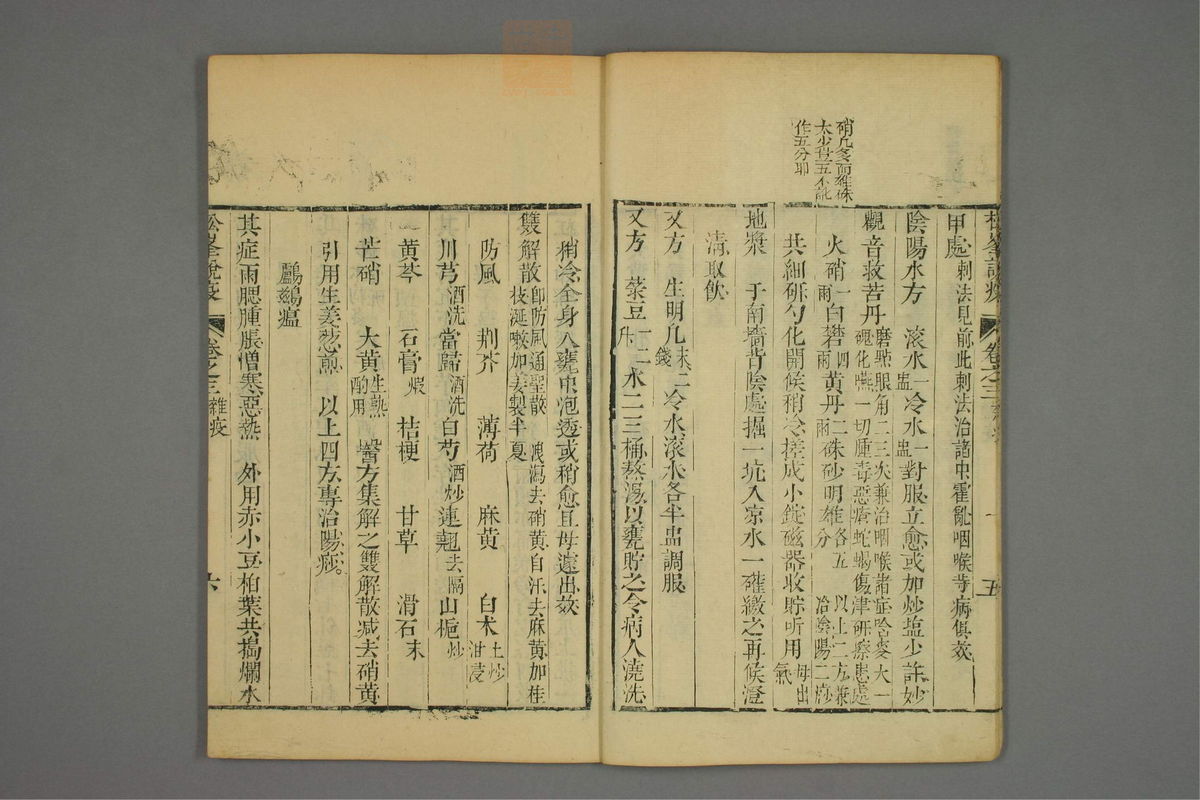 硝凡多而雄硃
太少豈五不訛
作五分耶
松峯說疫
卷之三
五
甲處刺法見前此刺法治諸中霍亂咽喉等病俱效
陰陽水方　滾水一盅冷水一盅對服立愈或加炒塩少許妙
觀音救苦丹磨點眼角二三次兼治咽喉諸症哈麥大一塊化嚥一切腫毒惡瘡蛇蝎傷津研擦患處
火硝一兩白礬四兩黃丹二兩硃砂明雄各五分　以上二方兼治陰陽二痧
共細研勺化開候稍冷搓成小錠磁器收貯听用毋出氣
地漿　于南墻背陰處掘一坑入凉水一確繳之再候澄
淸取飲
又方　生明凡末二錢冷水滾水各半盅調服
又方　菉豆一二升水二三桶熬湯以甕貯之令病人澆洗
稍冷全身入甕中泡透或稍愈且毋遽出效
雙解散卽防風通聖散　浪瀉去硝黃自汗去麻黃加桂枝涎嗽加姜製半夏
防風　荆芥　薄荷　麻黃　白朮土炒泔浸
川芎酒洗當歸酒洗白芍酒炒連翹去隔山梔炒
黃芩　石膏煅　桔梗　甘草　滑石末
芒硝　大黃生熟酌用　醫方集解之雙解散減去硝黃
引用生姜葱煎　以上四方專治陽痧。
鸕鶿瘟
其症兩腮腫脹憎寒惡熱　外用赤小豆柏葉共搗爛水
松峯說疫
卷之三
雜疫
六